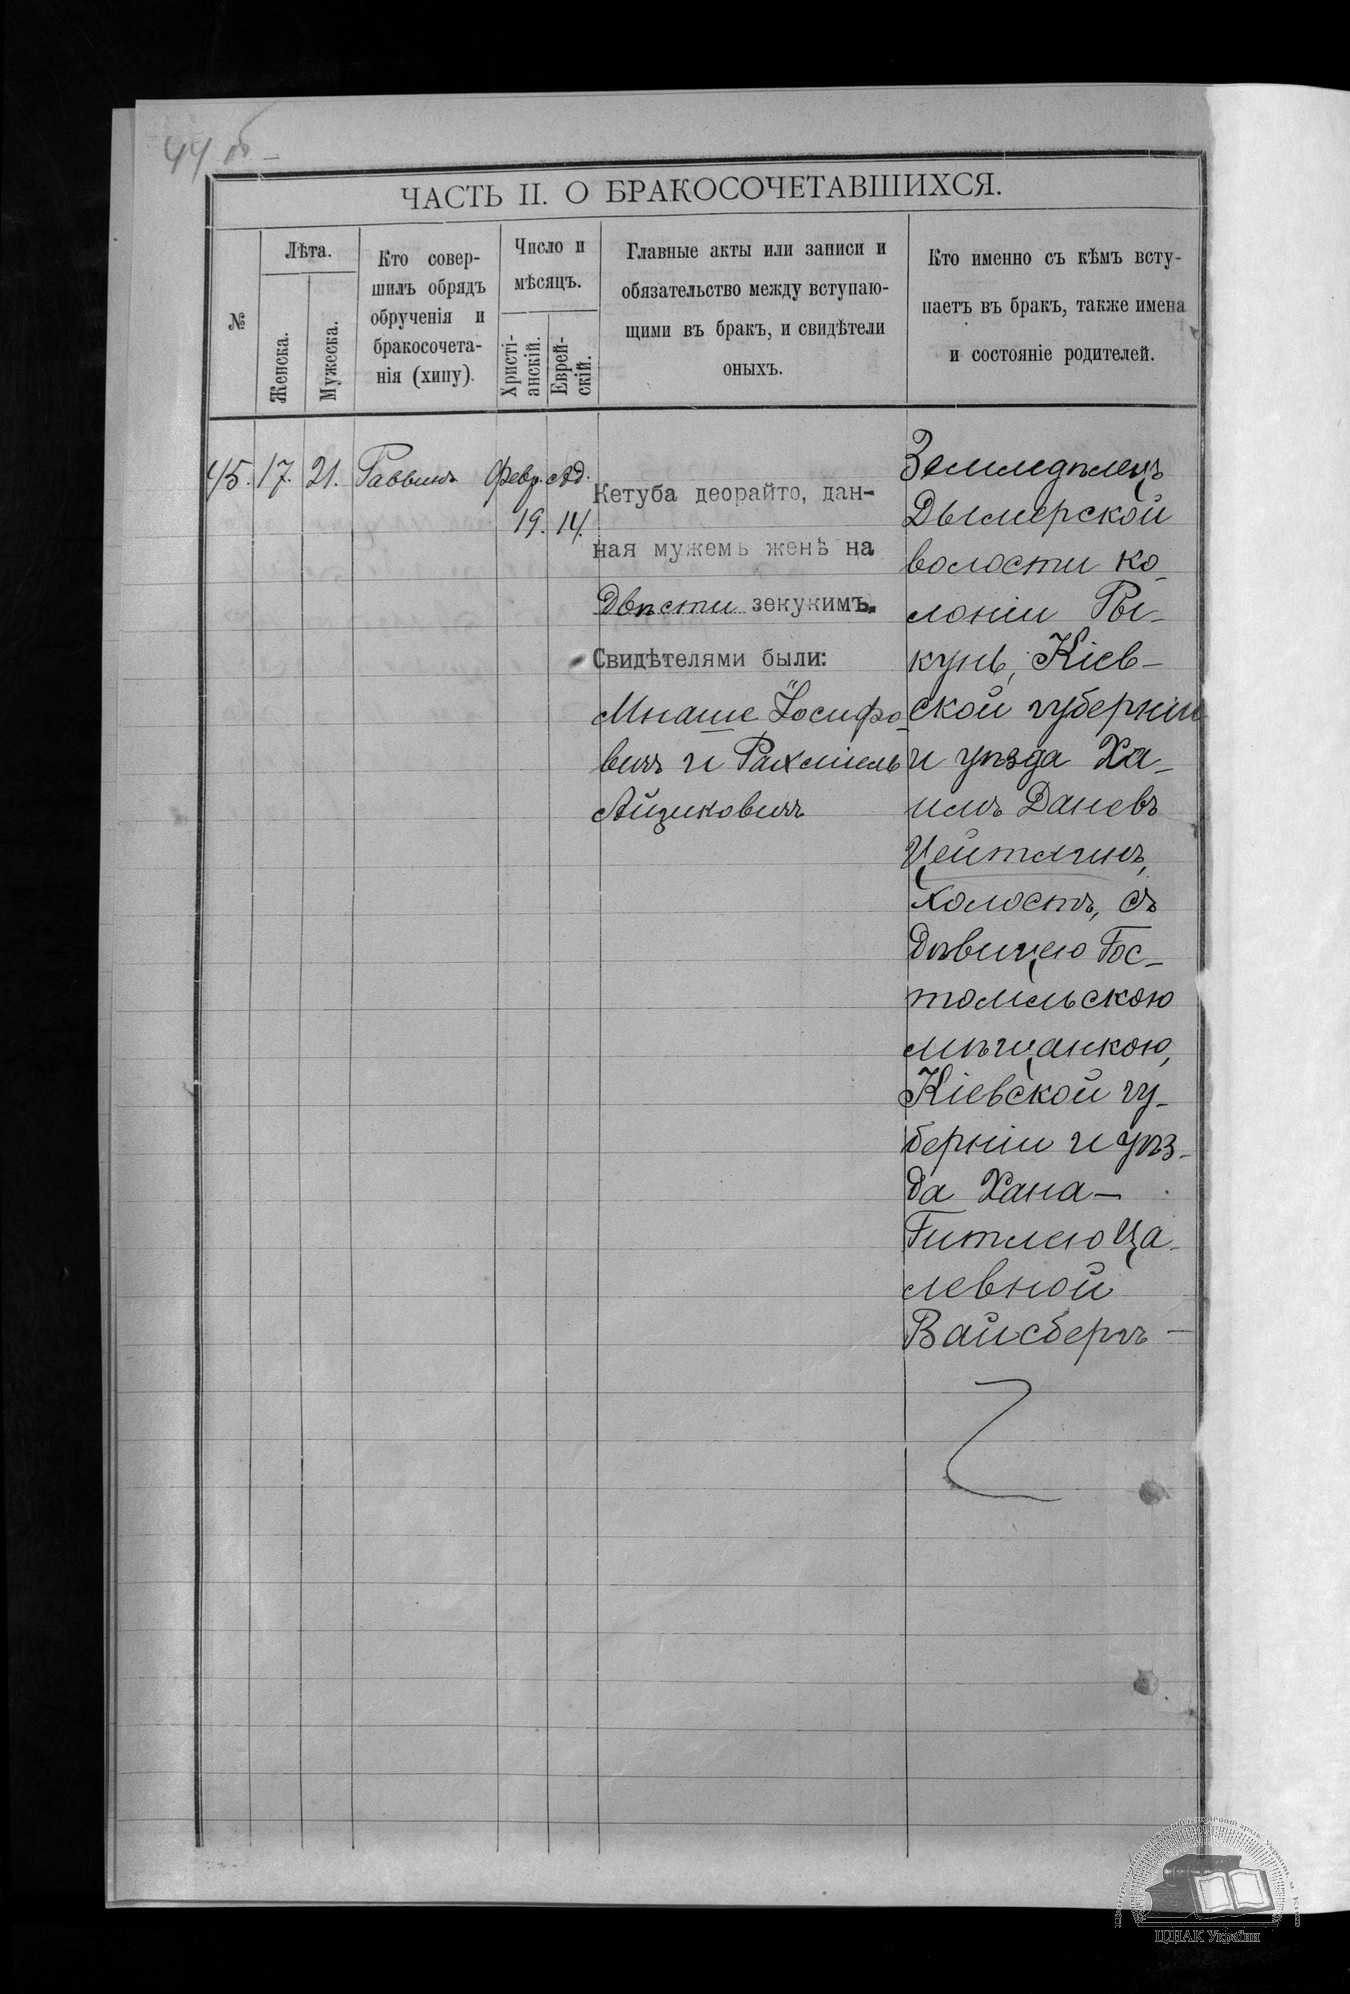 44 об
ЧАСТЬ II. О БРАКОСОЧЕТАВШИХСЯ.
№
Лѣта.
Женска.
Мужеска.
Кто совер-
шилъ обрядъ
обрученія и
бракосочета-
нія (хипу).
Число и
мѣсяцъ.
Христі-
анскій.
Еврей-
скій.
Главные акты или записи и
обязательство между вступаю-
щими въ бракъ, и свидѣтели
оныхъ.
Кто именно съ кѣмъ всту-
паетъ въ бракъ, также имена
и состояніе родителей.
45. 17. 21. Раввинъ Февр. Ад.
19. 14.
Кетуба деорайто, дан-
ная мужемъ женѣ на
Двѣсти зекукимъ.
Свидѣтелями были:
Мнаше Іосифо-
вичъ и Рахміель
Айзиковичъ
Земледѣлецъ
Дымерской
волости ко-
лоніи Ры-
кунь, Кіев-
ской губерніи
и уѣзда Ха-
имъ Даневъ
Цейтлинъ,
холостъ, съ
дѣвицею Гос-
томельскою
мѣщанкою,
Кіевской гу-
берніи и уѣз-
да Хана-
Гитлею Ца-
левной
Вайсбергъ —
ЦДІАК України